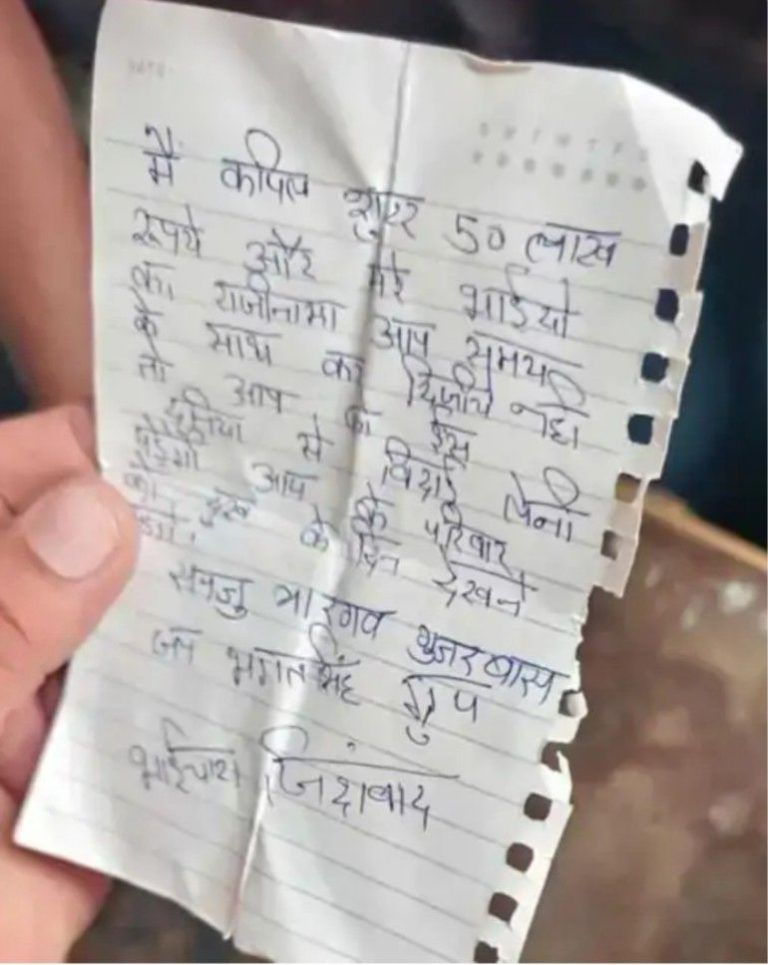 DATE:
S M T W T F S
मैं कपिल शूटर 50 लाख
रूपये और मेरे भाईयो
का राजीनामा आप समय
के साथ कर दिजीये नही
तो आप को इस
दुनिया से विदाई लेना
पड़ेगा आप के परिवार
को दुख के दिन देखने
सनजु भारगव गुजरबास
जत भगत सिंह ग्रुप
भाईचारा जिंदाबाद